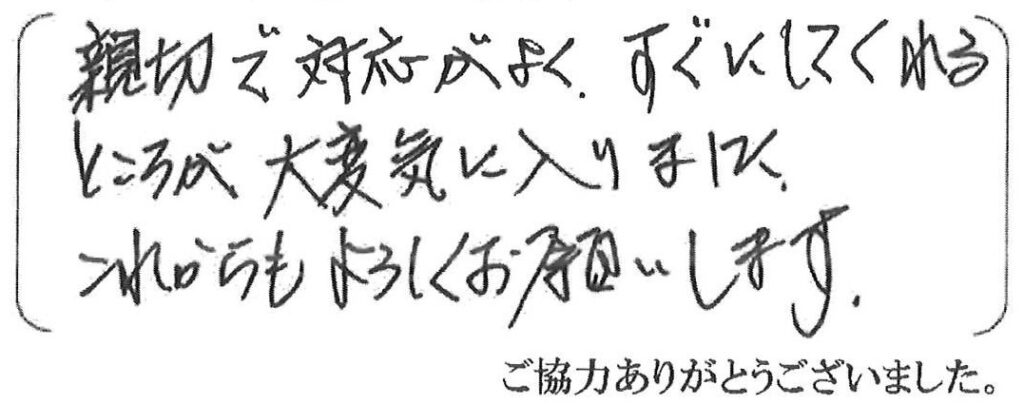 親切で対応がよく、すぐにしてくれる
ところが、大変気に入りました、
これからもよろしくお願いします。
ご協力ありがとうございました。